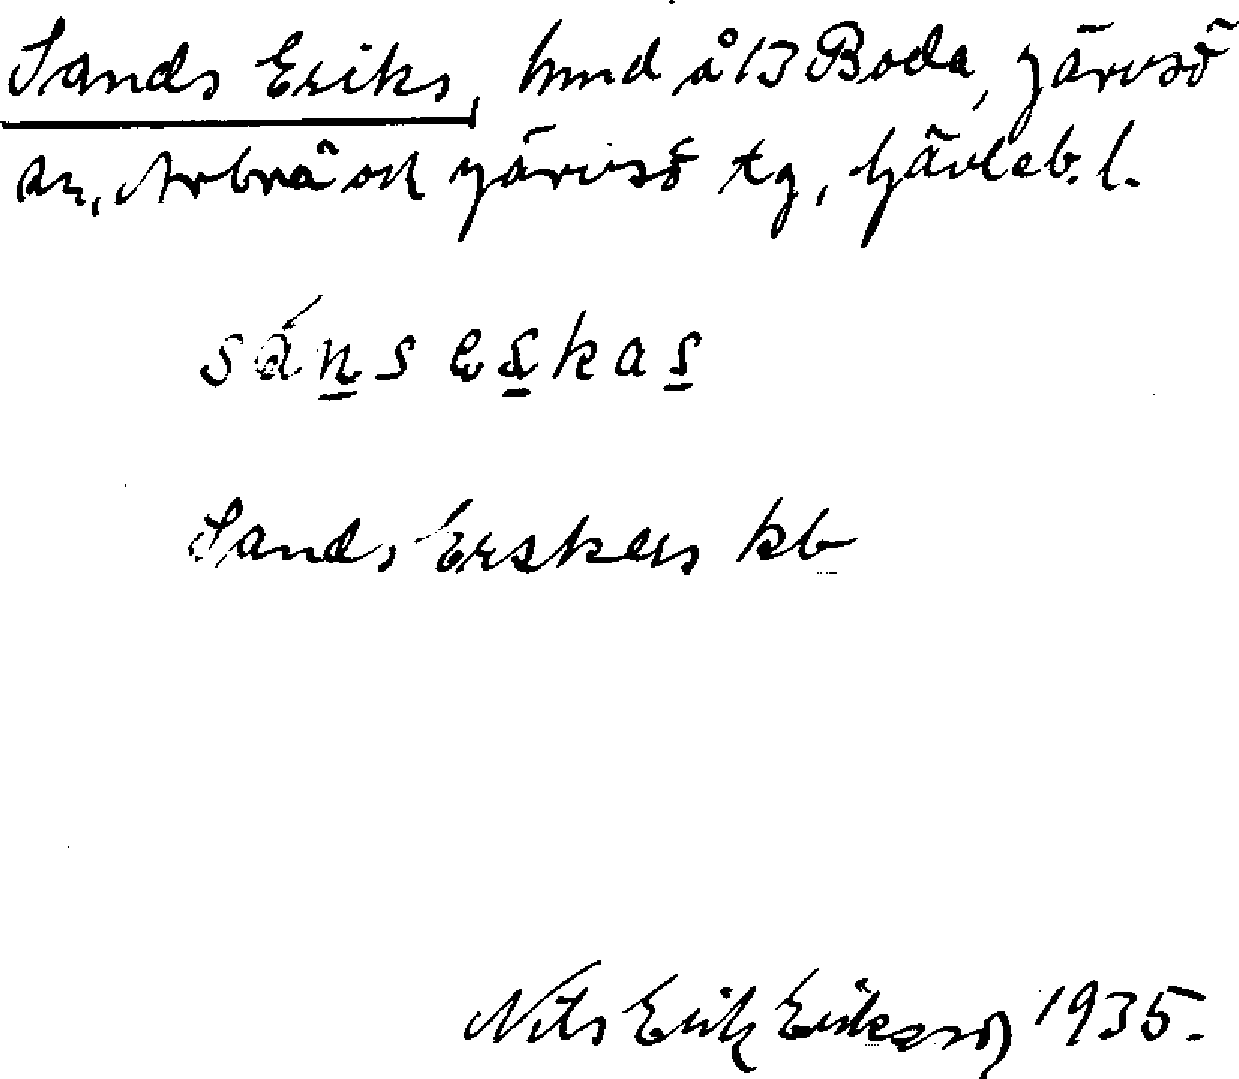 Sands Eriks, hmd å 13 Boda, Järvsö
sn, Arbrå och Järvsö tg, Gävleb. l.
Sands Erskers kb
Nils Erik Eriksson 1935.